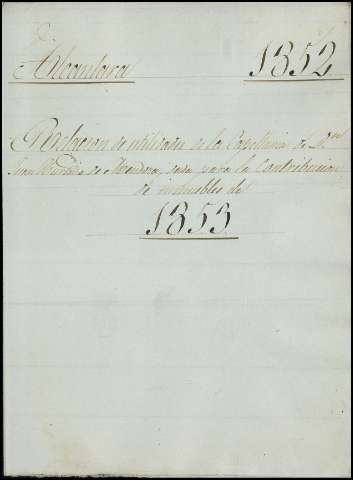 Alcantara 1852
Relacion de utilidades de la Capellania de Dn
Juan de Mendoza, dada para la Contribucion
de inmuebles de
1853